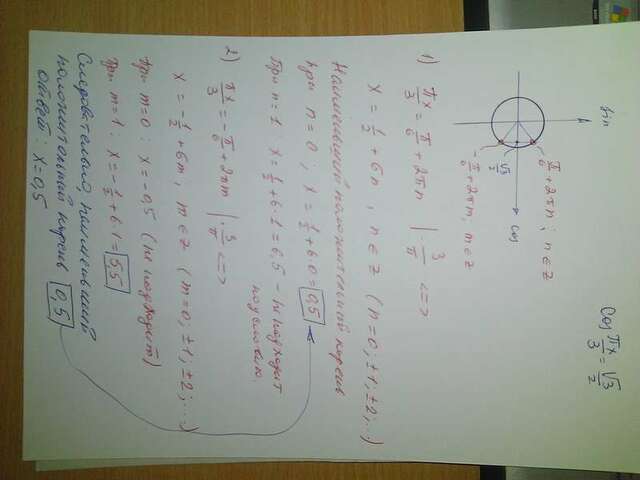 cos πx/3 = √3/2
sin
π/6 + 2πn; n∈z
√3/2
cos
-π/6 + 2πm, m∈z
1) πx/3 = π/6 + 2πn | · 3/π <=>
x = 1/2 + 6n, n∈z (n=0; ±1; ±2; ...)
Наименьший положительный корень
при n=0; x = 1/2 + 6·0 = 0,5
При n=1: x = 1/2 + 6·1 = 6,5 - не подходит
по условию.
2) πx/3 = -π/6 + 2πm | · 3/π <=>
x = -1/2 + 6m, m∈z (m=0; ±1; ±2; ...)
при m=0: x = -0,5 (не подходит)
При m=1: x = -1/2 + 6·1 = 5,5
Следовательно, наименьший
положительный корень 0,5
ответ: x=0,5